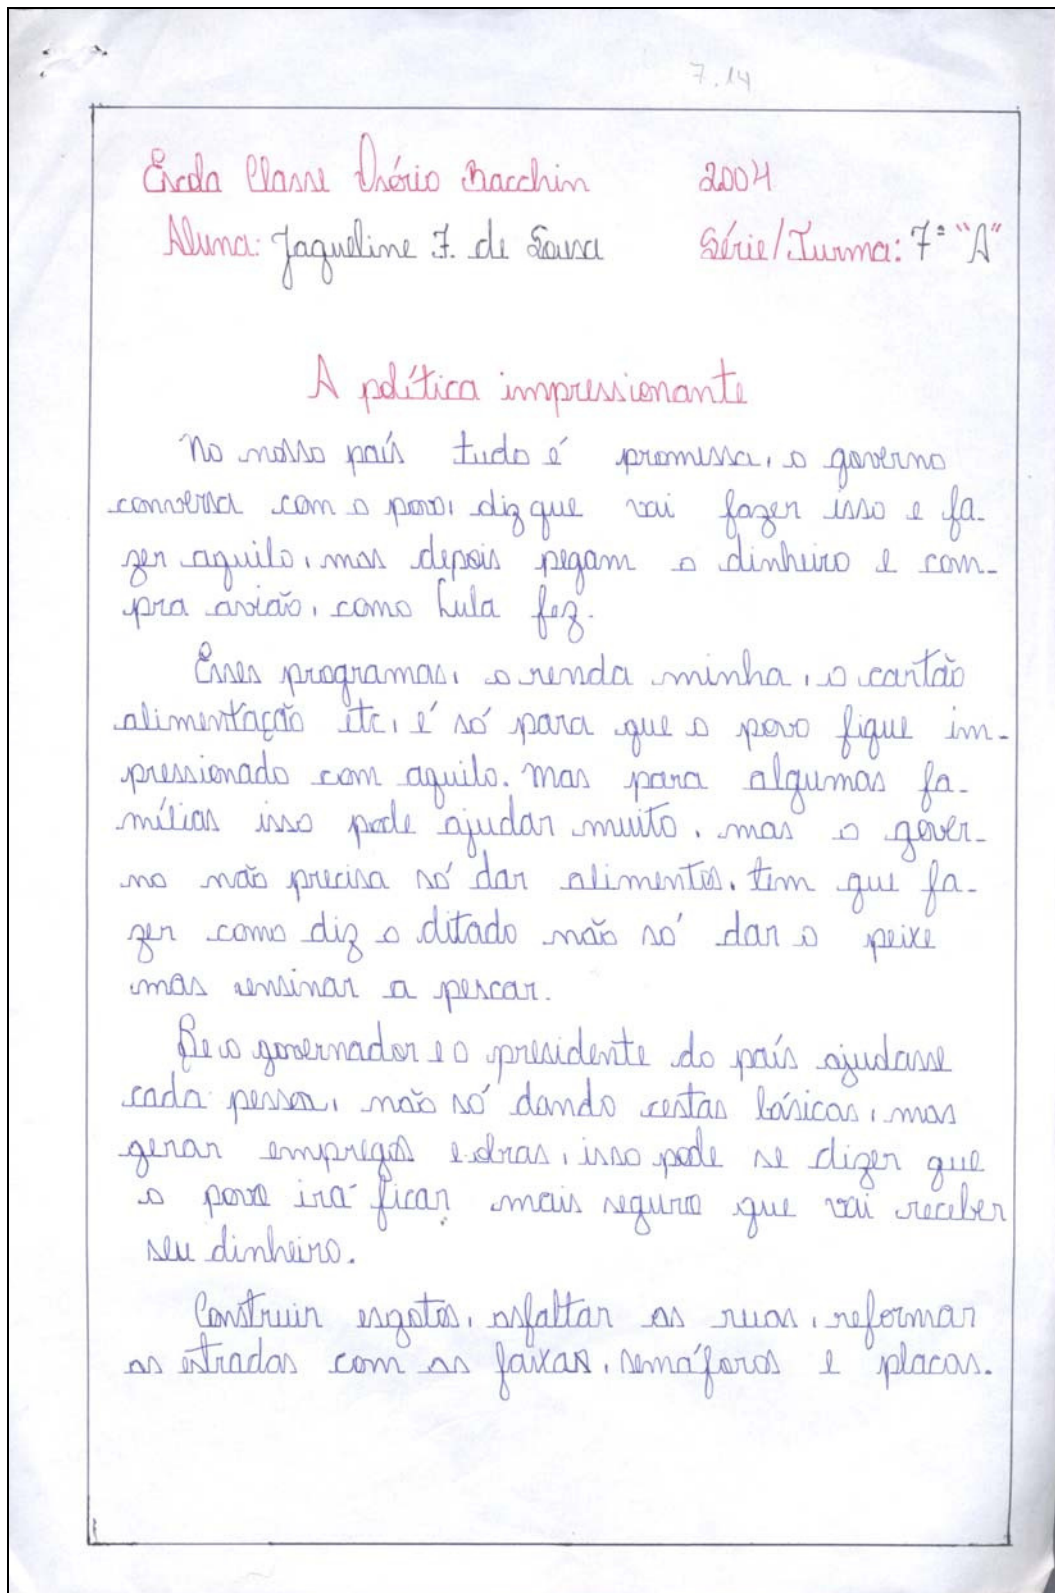 7.14
Escola Classe Osório Bacchin 2004
Aluna: Jaqueline F. de Sousa Série/Turma: 7ª "A"
A política impressionante
No nosso país tudo é promissa, o governo
conversa com o povo, diz que vai fazer isso e fa-
zer aquilo, mas depois pegam o dinheiro e com-
pra avião, como Lula fez.
Esses programas, o renda minha, o cartão
alimentação etc, é só para que o povo fique im-
pressionado com aquilo. Mas para algumas fa-
mílias isso pode ajudar muito, mas o gover-
no não precisa só dar alimentos, tem que fa-
zer como diz o ditado não só dar o peixe
mas ensinar a pescar.
Se o governador e o presidente do país ajudasse
cada pessoa, não só dando cestas básicas, mas
gerar empregos e obras, isso pode se dizer que
o povo irá ficar mais seguro que vai receber
seu dinheiro.
Construir esgotos, asfaltar as ruas, reformar
as estradas com as faixas, semáforos e placas.